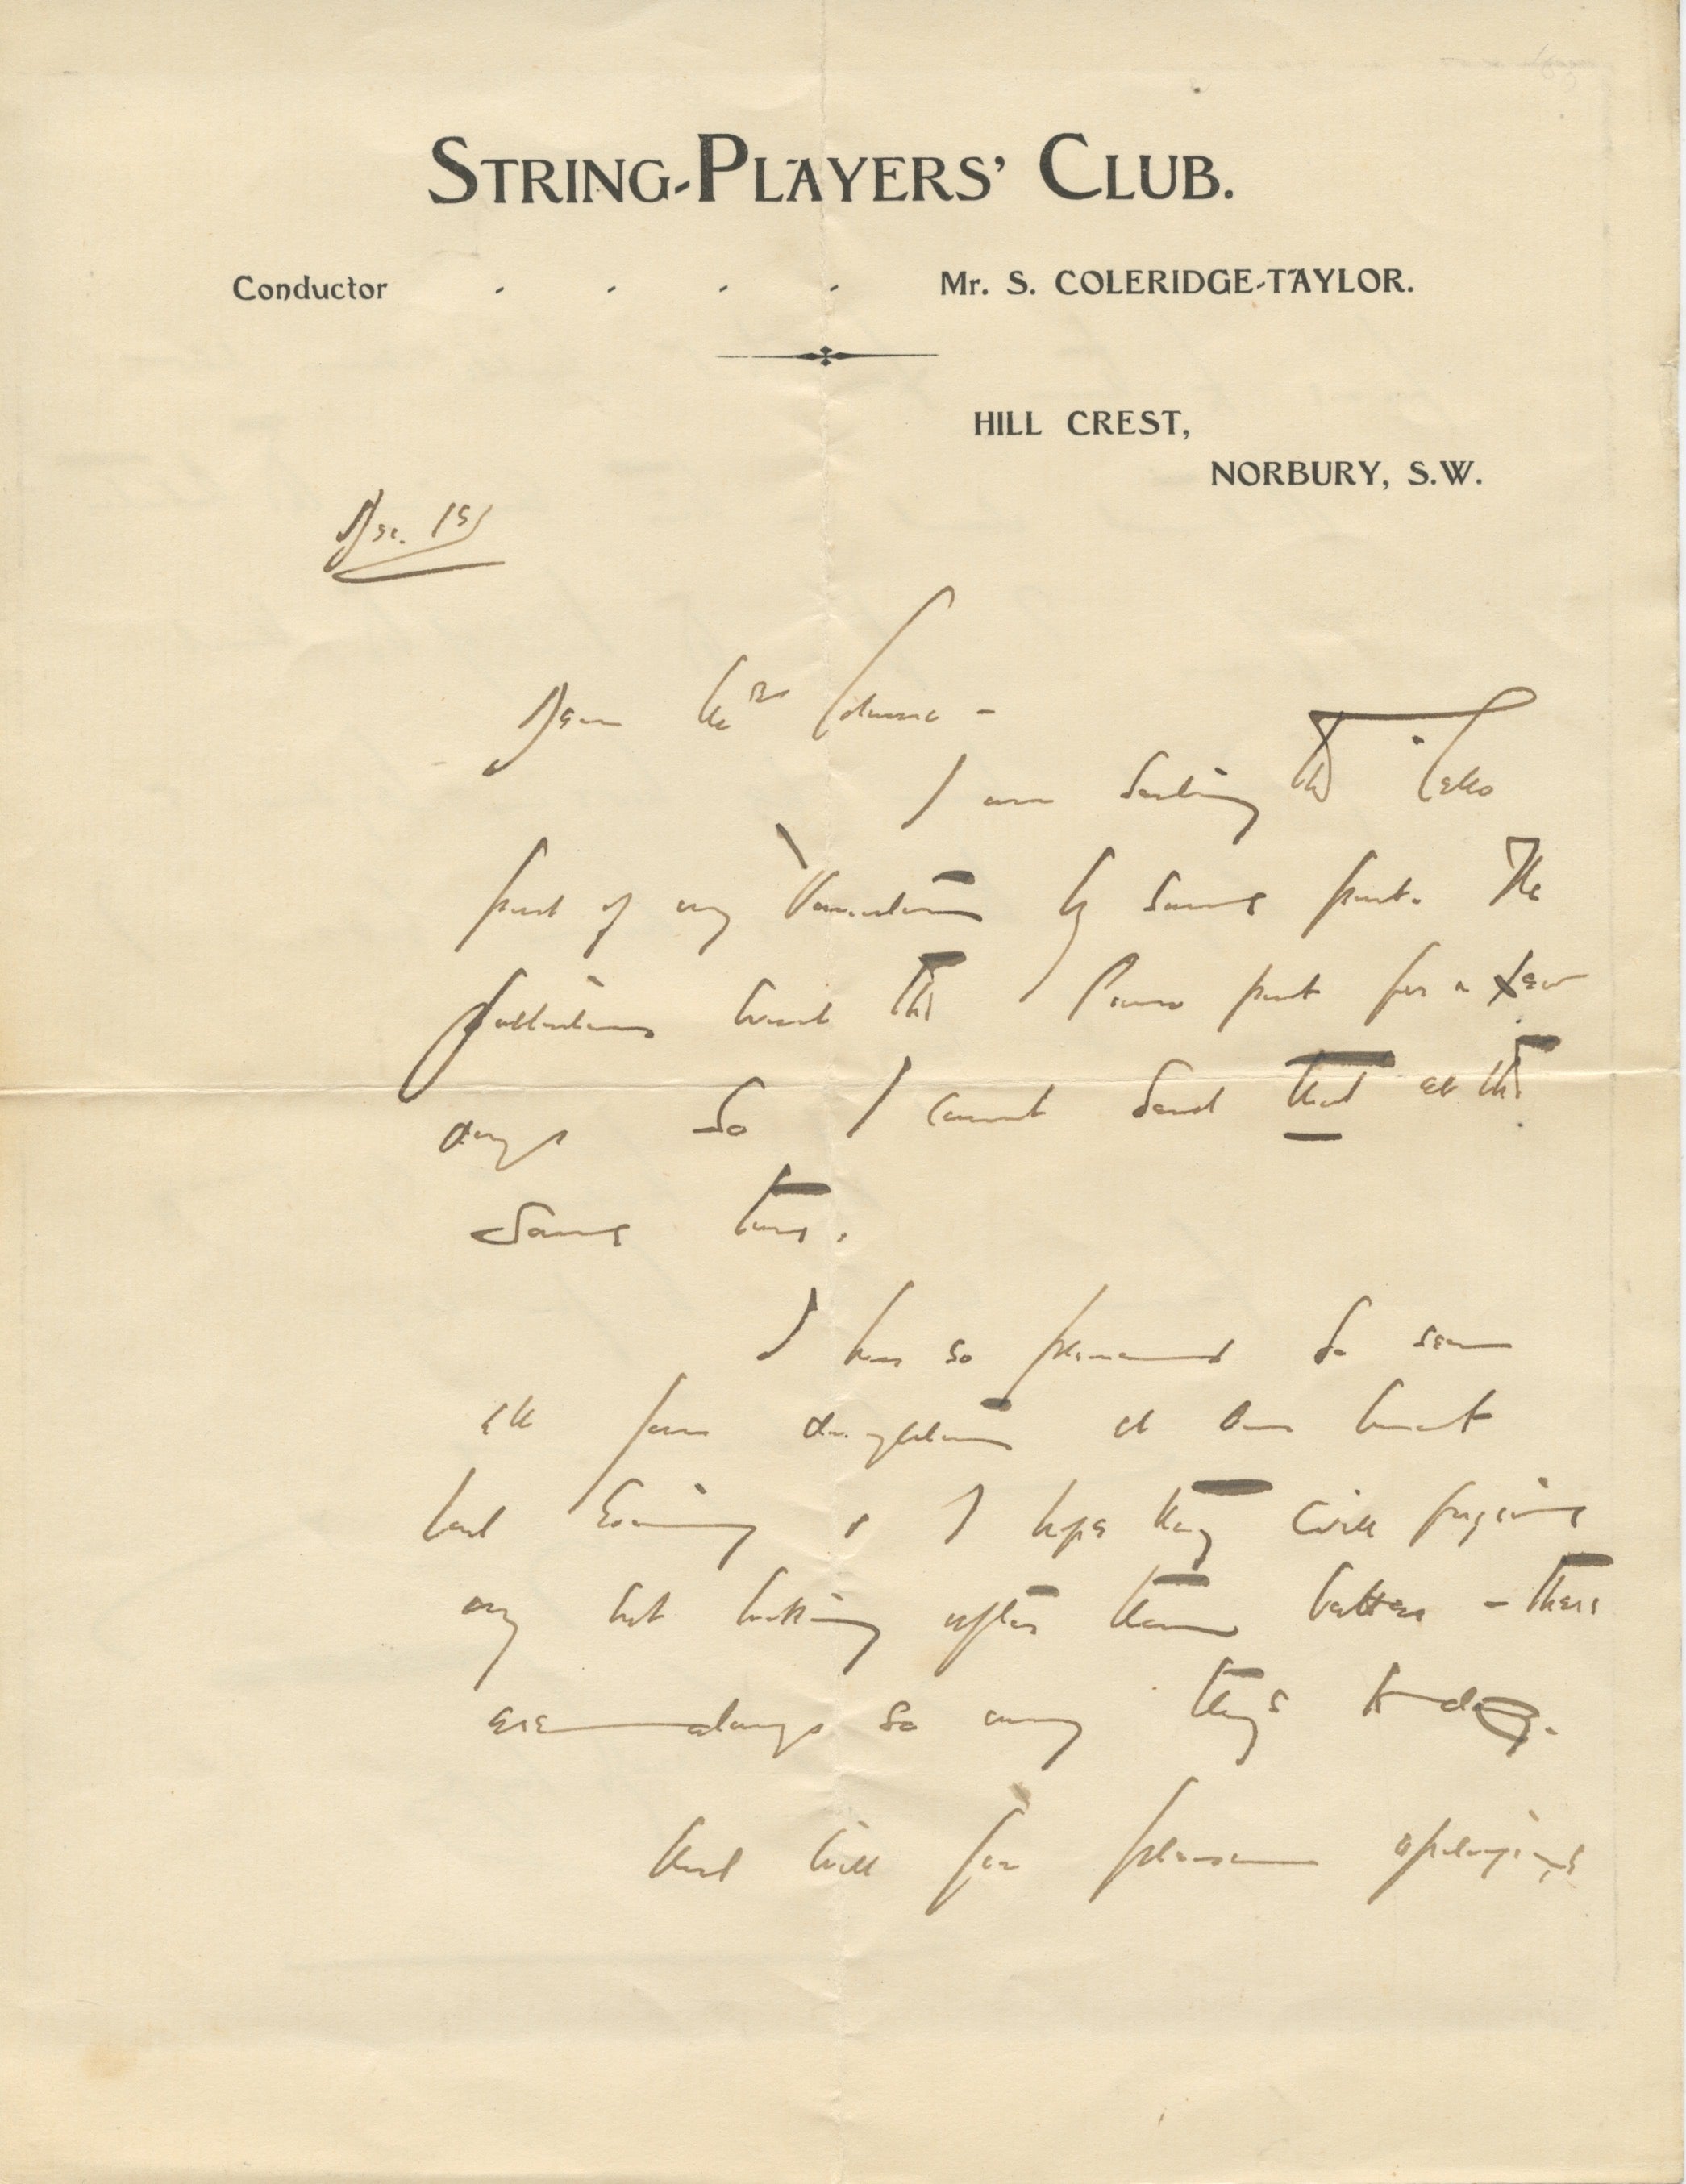 STRING-PLAYERS' CLUB.
Conductor . . . . Mr. S. COLERIDGE-TAYLOR.
HILL CREST,
NORBURY, S.W.
Dec. 15
Dear Mrs
I am sending the 'Cello
part of my Variations by same post. The
publishers want the Piano part for a few
days so I cannot send that at the
same time.
I was so pleased to see
all your daughters at our concert
last Evening & I hope they will forgive
my not looking after them better – there
are always so many things to do.
But will you please apologise